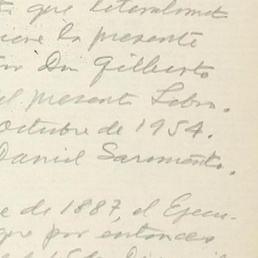 que literalmet
la presente
Don Gilberto
el present Libro.
octubre de 1954.
Daniel Sarmento.
e de 1887, el Ejecu-
que por entonces